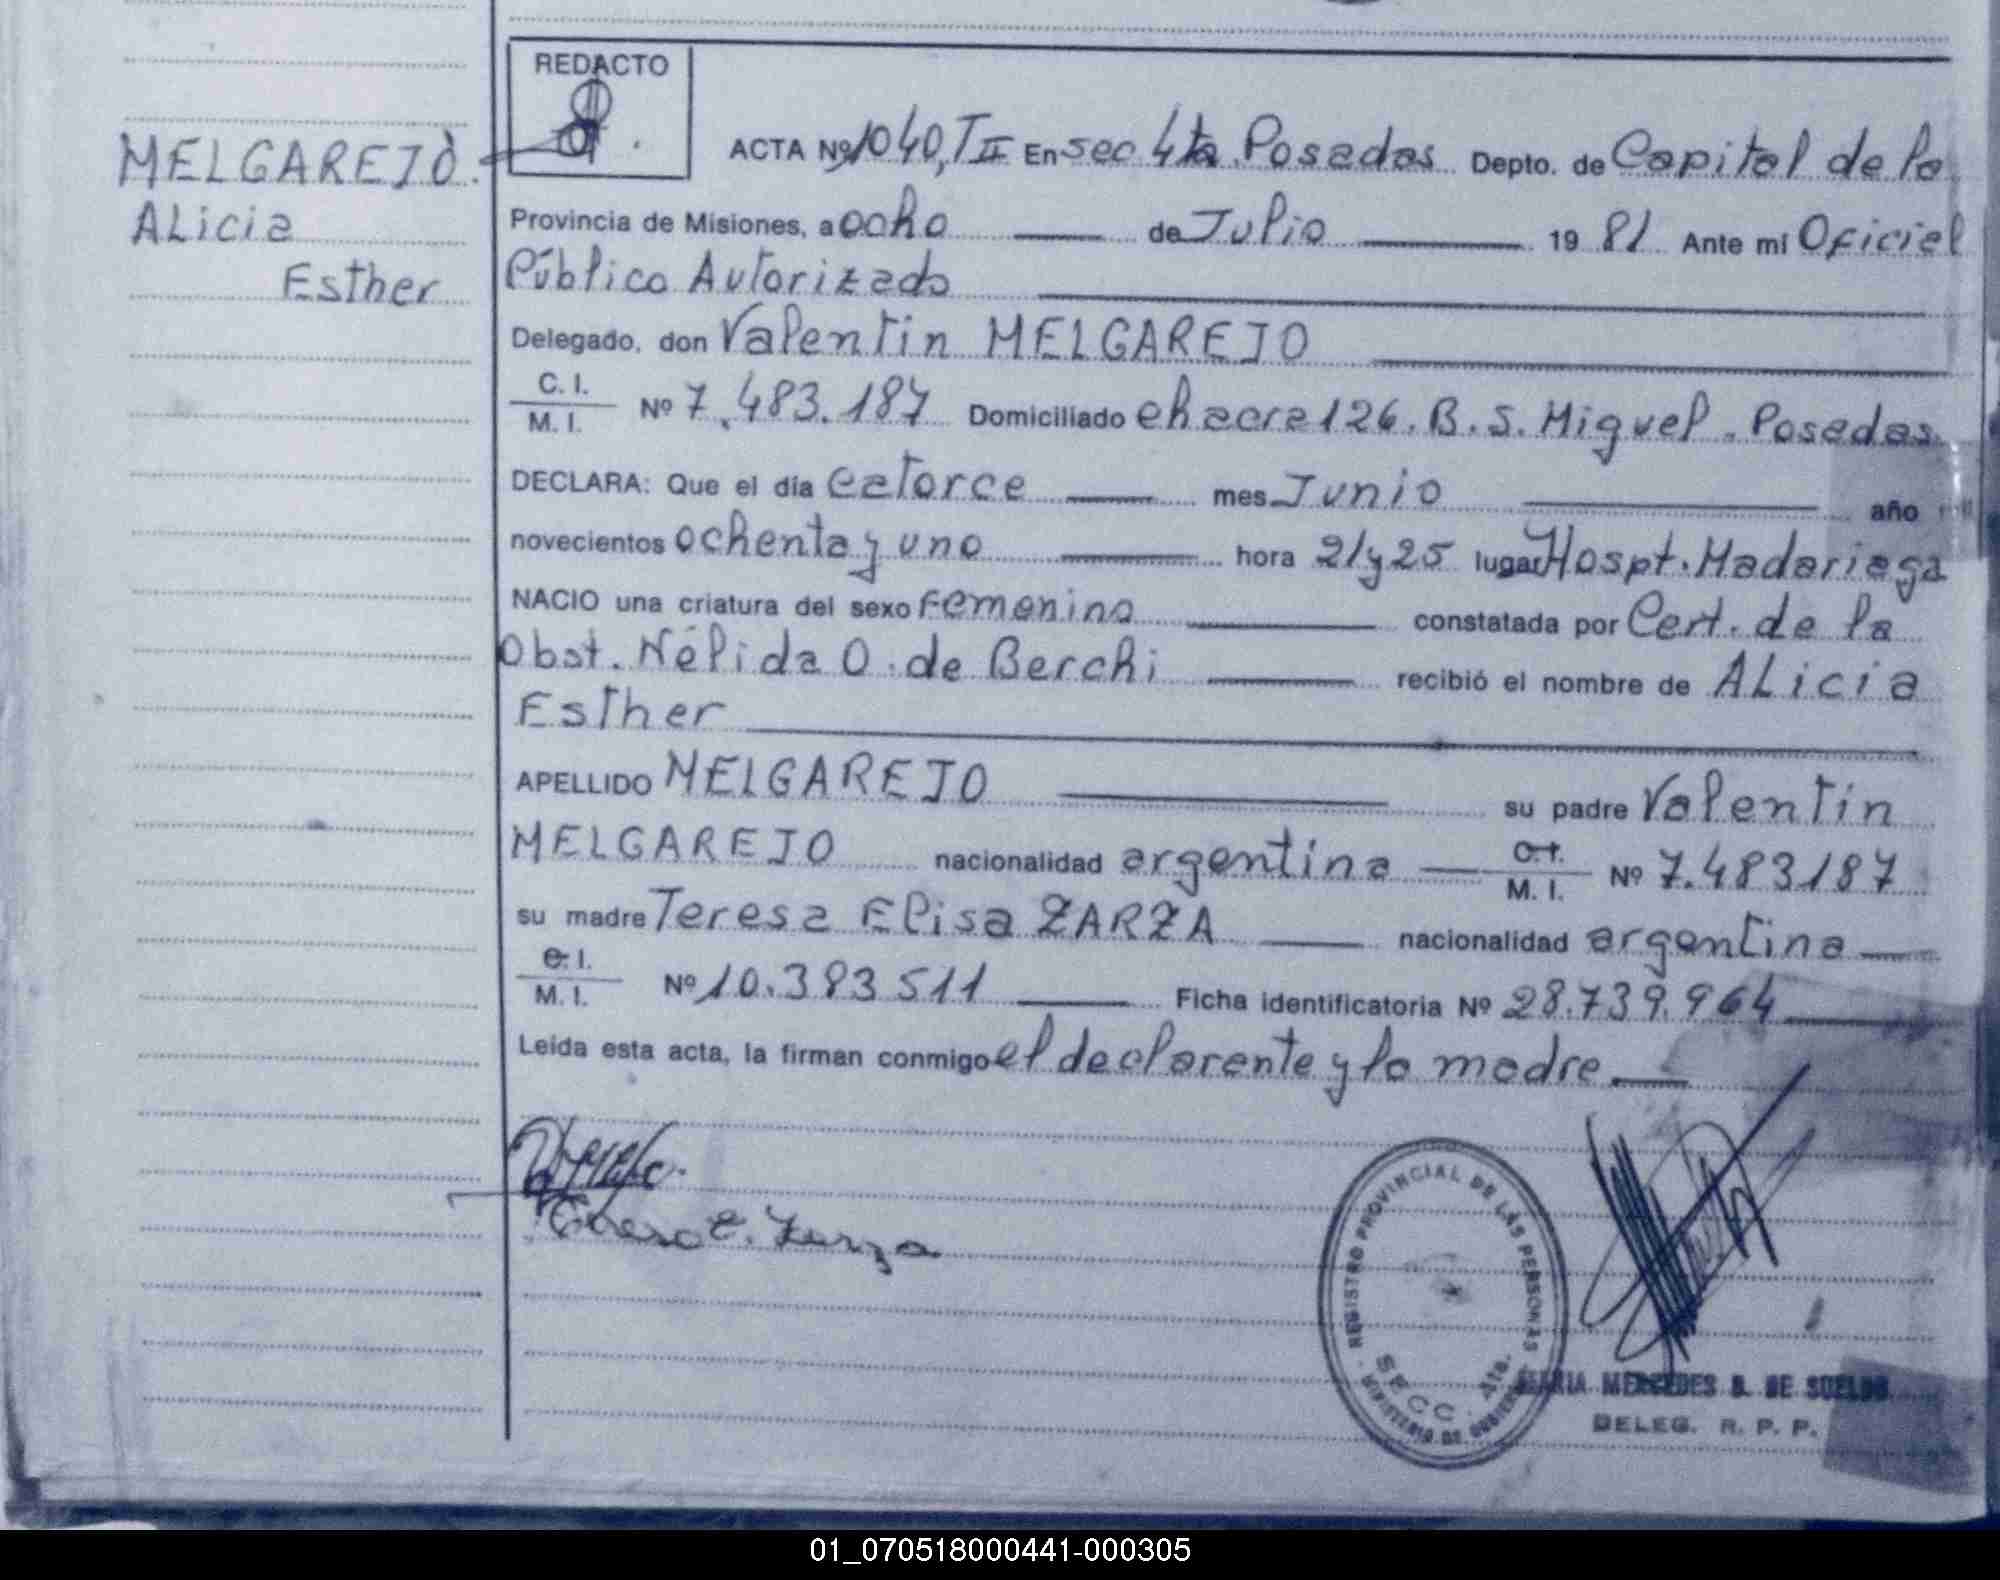 REDACTO
MELGAREJO.
ALicia
Esther
ACTA Nº 1040, T II En sec 4ta. Posadas Depto. de Capital de la
Provincia de Misiones, a ocho de Julio 19 81 Ante mí Oficial
Público Autorizado
Delegado, don Valentin MELGAREJO
C. I.
M. I. Nº 7.483.187 Domiciliado chacra 126. B. S. Miguel. Posadas.
DECLARA: Que el día catorce mes Junio año
novecientos ochenta y uno hora 21 y 25 lugar Hospt. Madariaga
NACIO una criatura del sexo Femenino constatada por Cert. de la
Obst. Nélida O. de Berchi recibió el nombre de ALicia
Esther
APELLIDO MELGAREJO su padre Valentin
MELGAREJO nacionalidad argentina C.I. M. I. Nº 7.483187
su madre Teresa Elisa ZARZA nacionalidad argentina
C.I.
M. I. Nº 10.383511 Ficha identificatoria Nº 28.739.964
Leída esta acta, la firman conmigo el declarente y la madre
E. Zarza
REGISTRO PROVINCIAL DE LAS PERSONAS
SECC. 4ta.
MINISTERIO DE GOBIERNO
MARIA MERCEDES B. DE SUELDO
DELEG. R. P. P.
01_070518000441-000305